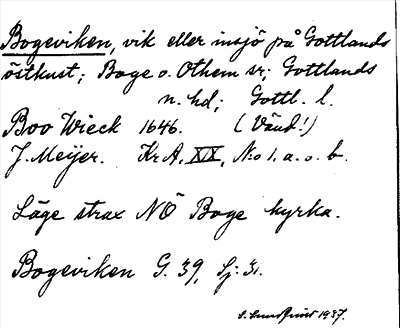 Bogeviken, vik eller insjö på Gottlands
östkust; Boge o. Othem sr; Gottlands
n. hd; Gottl. l.
Boo Wieck 1646. (Vänd!)
J. Meijer. KrA, XIX, No 1. a. o. b.
Läge strax NÖ Boge kyrka.
Bogeviken G. 39, Sj: 31.
1937.